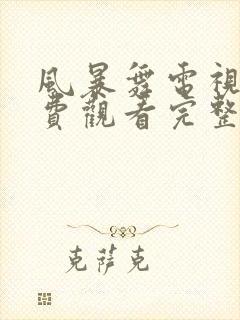 風暴舞電視
費觀看完整
克薩克